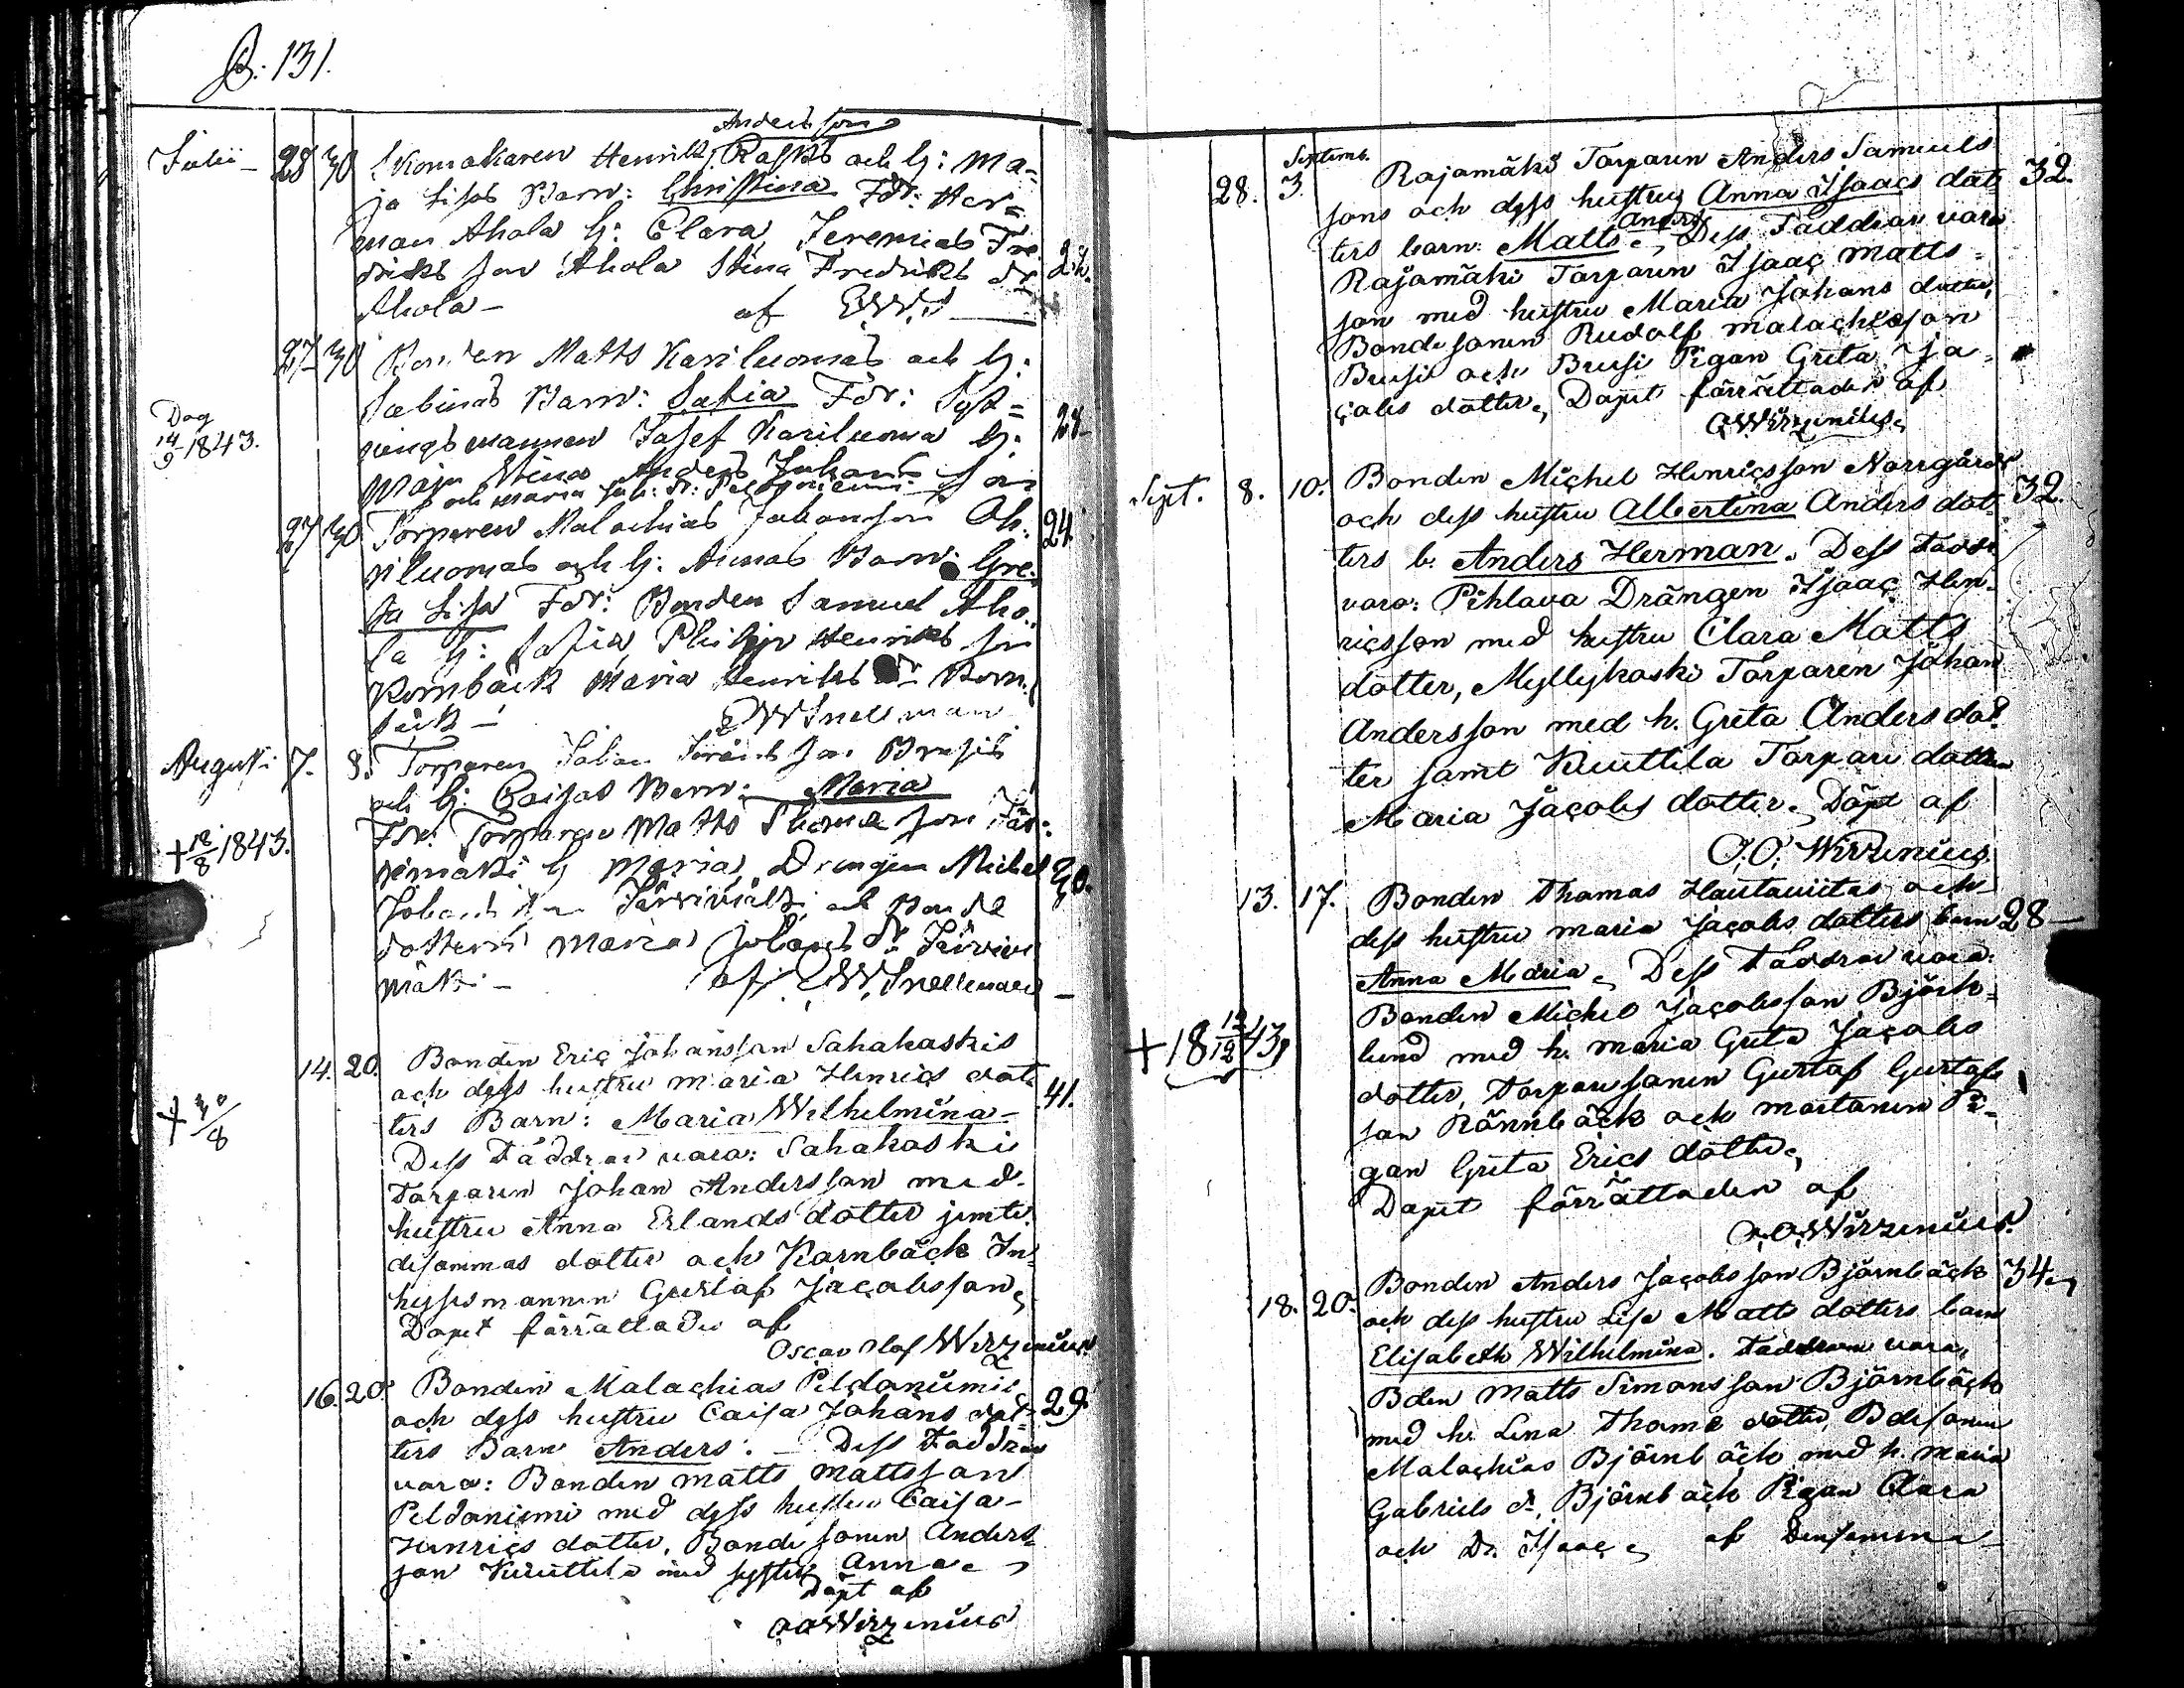 P. 131.
Anders son
Julii – 28 30 Skomakaren Henrik Rasks och h: Ma=
ja Lisas Barn: Christina Fdr: Her=
man Ahola h: Clara, Jeremias Fre
driks son Ahola Stina Fredriks dr
Ahola – af EWS
27 30 Bonden Matts Kariluomas och h: 28
Sabinas Barn: Safia Fdr:
Dag 14/9 1843.
mannen Josef Kariluoma h:
Maja Stina Anders Johans son
och Maria Joh: dr:
27 30 Torparen Malachias Johansson 24
riluomas och h: Annas Barn: Gre=
ta Lisa Fdr: Bonden Samuel Aho=
la h: Safia, Philip Henriks son
Kornbäck Maria Henriks dr Korn=
bäck – EWSnellman
Augusti 7. 8. Torparen Johan son Brusis
och h: Caisas Barn: Maria
Fdr: Torparen Matts Thomae son Jär=
+ 18/8 1843.
vimäki h Maria, Drengen Michel 30.
Johans son Järvimäki och Bonde
dottern Maria Johans dr Järvi
mäki – af EWSnellman –
14. 20. Bonden Eric Johansson Sahakoskis
och dess hustru Maria Henrics dot= 41.
+ 30/8
ters Barn: Maria Wilhelmina –
Dess Faddrar voro: Sahakoski
Torparen Johan Andersson med
hustru Anna Erlands dotter jemte
desammas dotter och Kornbäck In=
hysesmannen Gustaf Jacobsson,
Döpet förrättades af
Oscar Olof Wirzenius
16. 20. Bonden Malachias Peldoniemis 29.
och dess hustru Caisa Johans dot=
ters Barn Anders. – Dess Faddrar
voro: Bonden Matts Mattsson
Peldoniemi med dess hustru Caisa
Henrics dotter, Bonde sonen Anders=
son Kuuttila med syster Anna.
Döpt af
OOWirzenius
Septemb.
28. 3. Rajamäki Torparen Anders Samuels 32.
sons och dess hustru Anna Isaacs dot=
Anders
ters barn: Matts. Dess Faddrar voro
Rajamäki Torparen Isaac Matts=
son med hustru Maria Johans dotter,
Bondesonen Rudolf Malachiasson
Brusi och Brusi Pigan Greta Ja=
cobs dotter, Döpet förrättades af
OOWirzenius
Sept. 8. 10. Bonden Michel Henricsson Norrgårds 32.
och dess hustru Albertina Anders dot=
ters b. Anders Herman. Dess Faddr.
voro: Pihlava Drängen Isaac Hen=
ricsson med hustru Clara Matts
dotter, Myllykoski Torparen Johan
Andersson med h. Greta Anders dot=
ter samt Kuuttila Torpare dottern
Maria Jacobs dotter. Döpt af
O.O. Wirzenius
13. 17. Bonden Thomas Hautaviitas och
dess hustru Maria Jacobs dotters barn 28 –
Anna Maria. Dess Faddrar voro:
Bonden Michel Jacobsson Björk=
+ 18 12/12 43.
lund med h. Maria Greta Jacobs
dotter, Torpare sonen Gustaf Gustafs
son Rönnbäck och Martonen Pi=
gan Greta Erics dotter,
Döpet förrättades af
O.O.Wirzenius
18. 20. Bonden Anders Jacobsson Björnbäck 34.
och dess hustru Lisa Matts dotters barn
Elisabeth Wilhelmina. Faddrarne voro,
Bden Matts Simonsson Björnbäck
med h. Lena Thomæ dotter, Bdesonen
Malachias Björnbäck med h. Maria
Gabriels dr, Björnbäck Pigan Clara
och Dr. Isaac, af Densamme